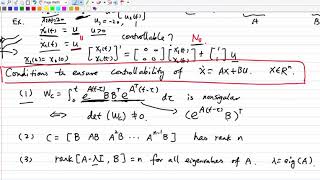 Ex.
ẋ₁(t) = u
ẋ₂(t) = u
controllable? No
[ẋ₁(t) ẋ₂(t)]' = [0 0 0 0] [x₁(t) x₂(t)] + [1 1] u
Conditions to ensure controllability of ẋ = Ax + Bu. x∈Rⁿ.
(1) W_c = ∫₀ᵗ e^{A(t-τ)} B Bᵀ e^{Aᵀ(t-τ)} dτ is nonsingular
⟺ det(W_c) ≠ 0. (e^{A(t-τ)} B)ᵀ
(2) C = [B AB A²B ... Aⁿ⁻¹B] has rank n
(3) rank[A-λI, B] = n for all eigenvalues of A. λ = eig(A).